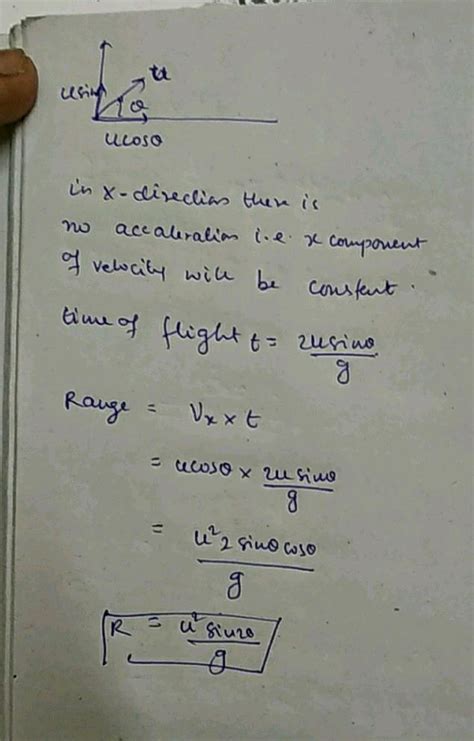 u
usinθ
θ
ucosθ
in x-direction there is
no accaleration i.e. x component
of velocity will be constent.
time of flight t = 2usinθ/g
Range = Vx × t
= ucosθ × 2usinθ/g
= u²2sinθcosθ/g
R = u²sin2θ/g